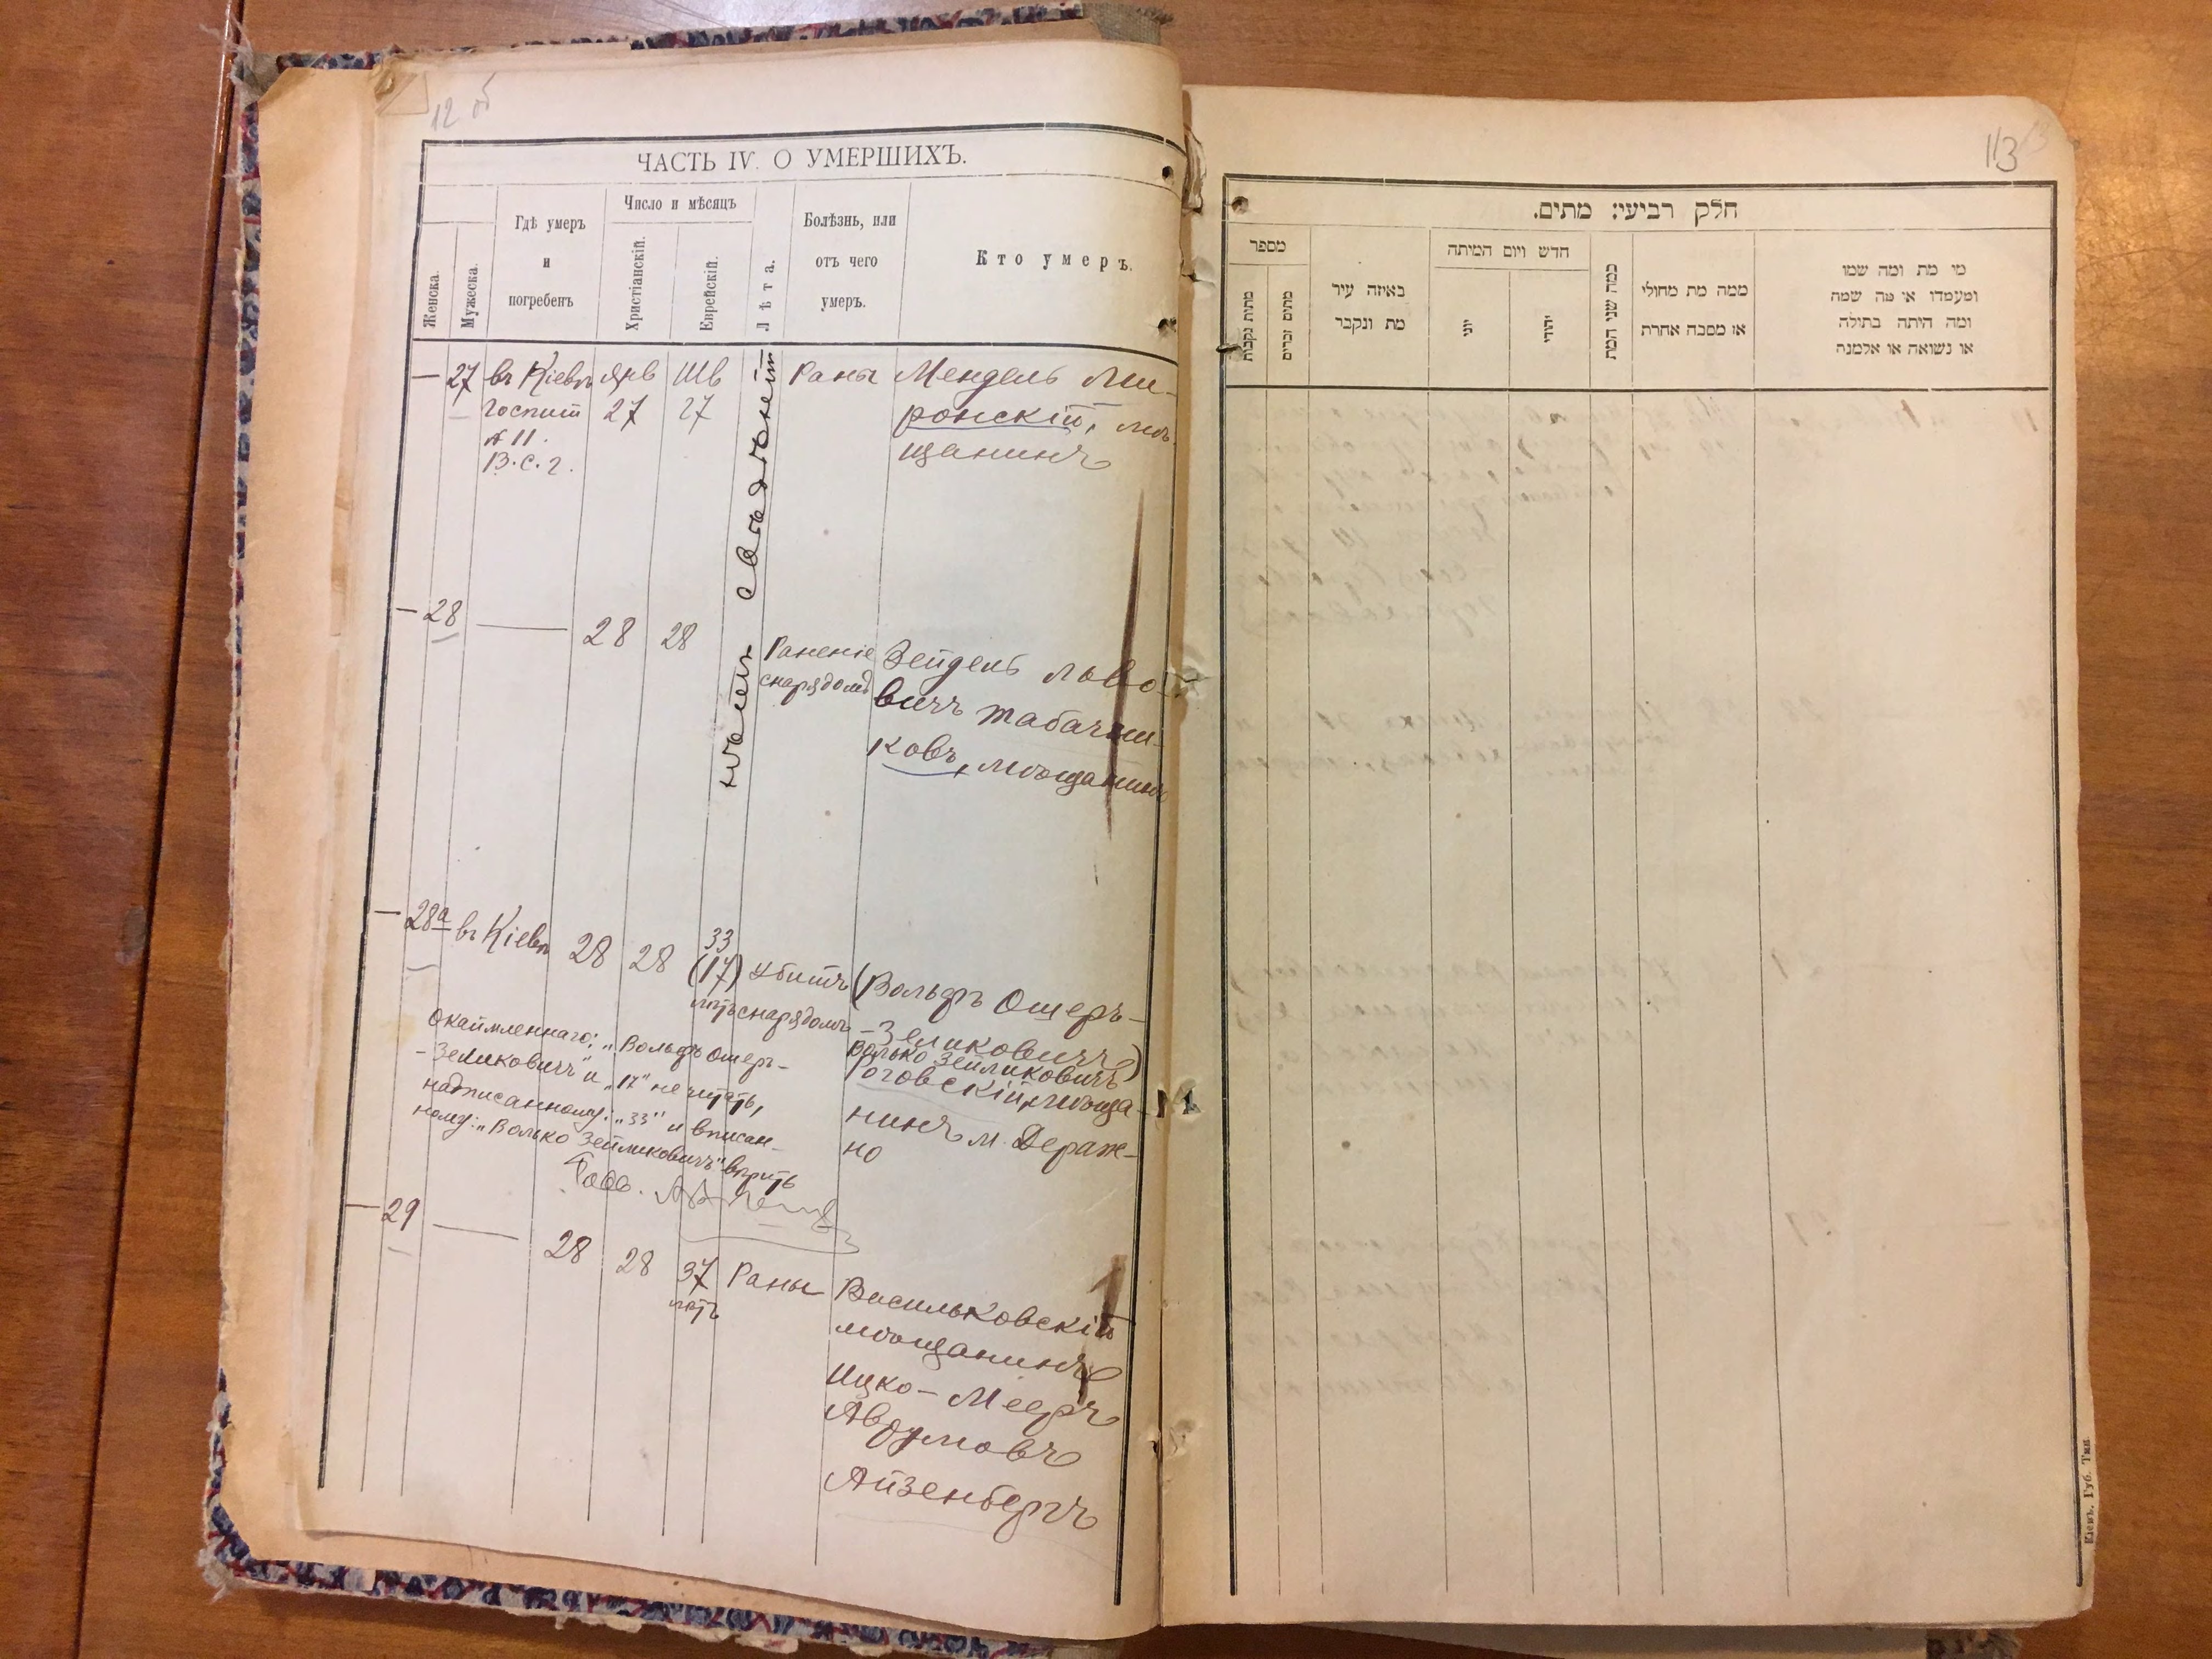 12 об
ЧАСТЬ IV. О УМЕРШИХЪ.
Женска.
Мужеска.
Гдѣ умеръ
и
погребенъ
Число и мѣсяцъ
Христіанскій.
Еврейскій.
Лѣта.
Болѣзнь, или
отъ чего
умеръ.
Кто умеръ.
— 27 въ Кіевѣ Янв Шв Раны Мендель Ми-
госпит 27 27 ронскій, мѣ-
№ 11. щанинъ
В.С.г.
нѣтъ свѣдѣній
— 28 — 28 28 Раненіе Зейдель Лейбо-
снарядомъ вичъ Табачни-
ковъ, мѣщанинъ
— 28а въ Кіевѣ 28 28 33
(17) Убитъ (Вольфъ Ошеръ-
лѣтъ снарядомъ -Зеликовичъ)
Волько Зейликовичъ
Роговскій, мѣща-
нинъ м. Деражно
Окаймленнаго: „Вольфъ Ошеръ-
-Зеликовичъ" и „17" не читать,
надписанному: „33" и вписан-
ному: „Волько Зейликовичъ" вѣрить
— 29 — 28 28 37 Раны Васильковскій
лѣтъ мѣщанинъ
Ицко-Мееръ
Аврумовъ
Айзенбергъ
113
חלק רביעי: מתים.
מספר
מתות נקבות
מתים זכרים
באיזה עיר
מת ונקבר
חדש ויום המיתה
יוני
יהודי
כמה שני המת
ממה מת מחולי
או מסבה אחרת
מי מת ומה שמו
ומעמדו או מה שמה
ומה היתה בתולה
או נשואה או אלמנה
Кіевъ. Губ. Тип.